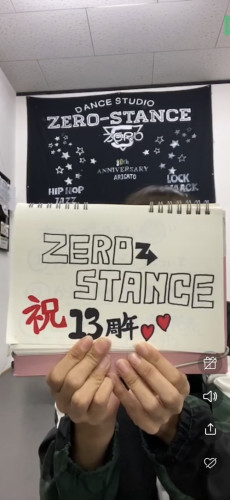 DANCE STUDIO
ZERO-STANCE
ZERO
10th
ANNIVERSARY
ARIGATO
HIP HOP
JAZZ
LOCK
WAACK
ZERO
STANCE
祝
13周年